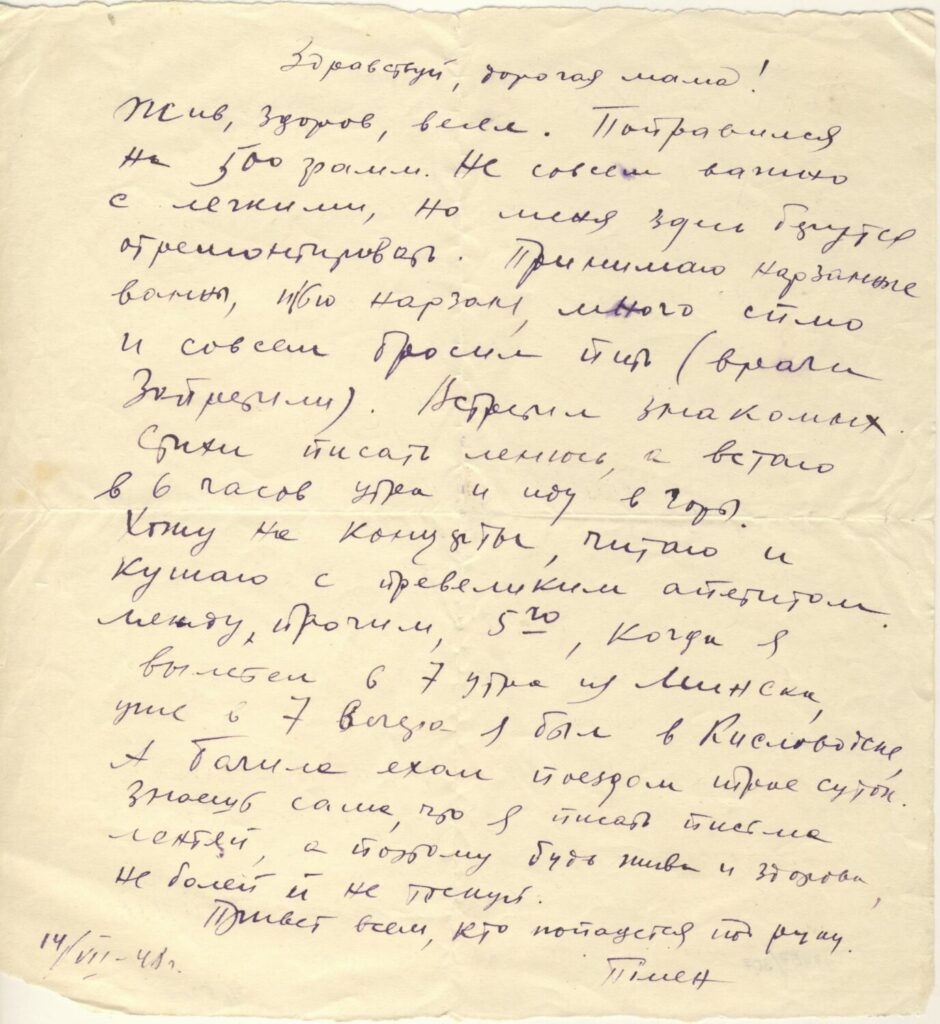 Здравствуй, дорогая мама!
Жив, здоров, весел. Поправился
на 500 грамм. Не совсем важно
с легкими, но меня здесь берутся
отремонтировать. Принимаю нарзанные
ванны, пью нарзан, много сплю
и совсем бросил пить (врачи
запретили). Встретил знакомых.
Стихи писать ленюсь, а встаю
в 6 часов утра и иду в горы.
Хожу на концерты, читаю и
кушаю с превеликим апетитом.
Между прочим, 5го, когда я
вылетел в 7 утра из Минска,
уже в 7 вечера я был в Кисловодске,
А Бачила ехал поездом трое суток.
Знаешь сама, что я писать письма
лентяй, а поэтому будь жива и здорова,
не болей и не тоскуй.
Привет всем, кто попадется под руку.
14/VII-48г.
Пімен